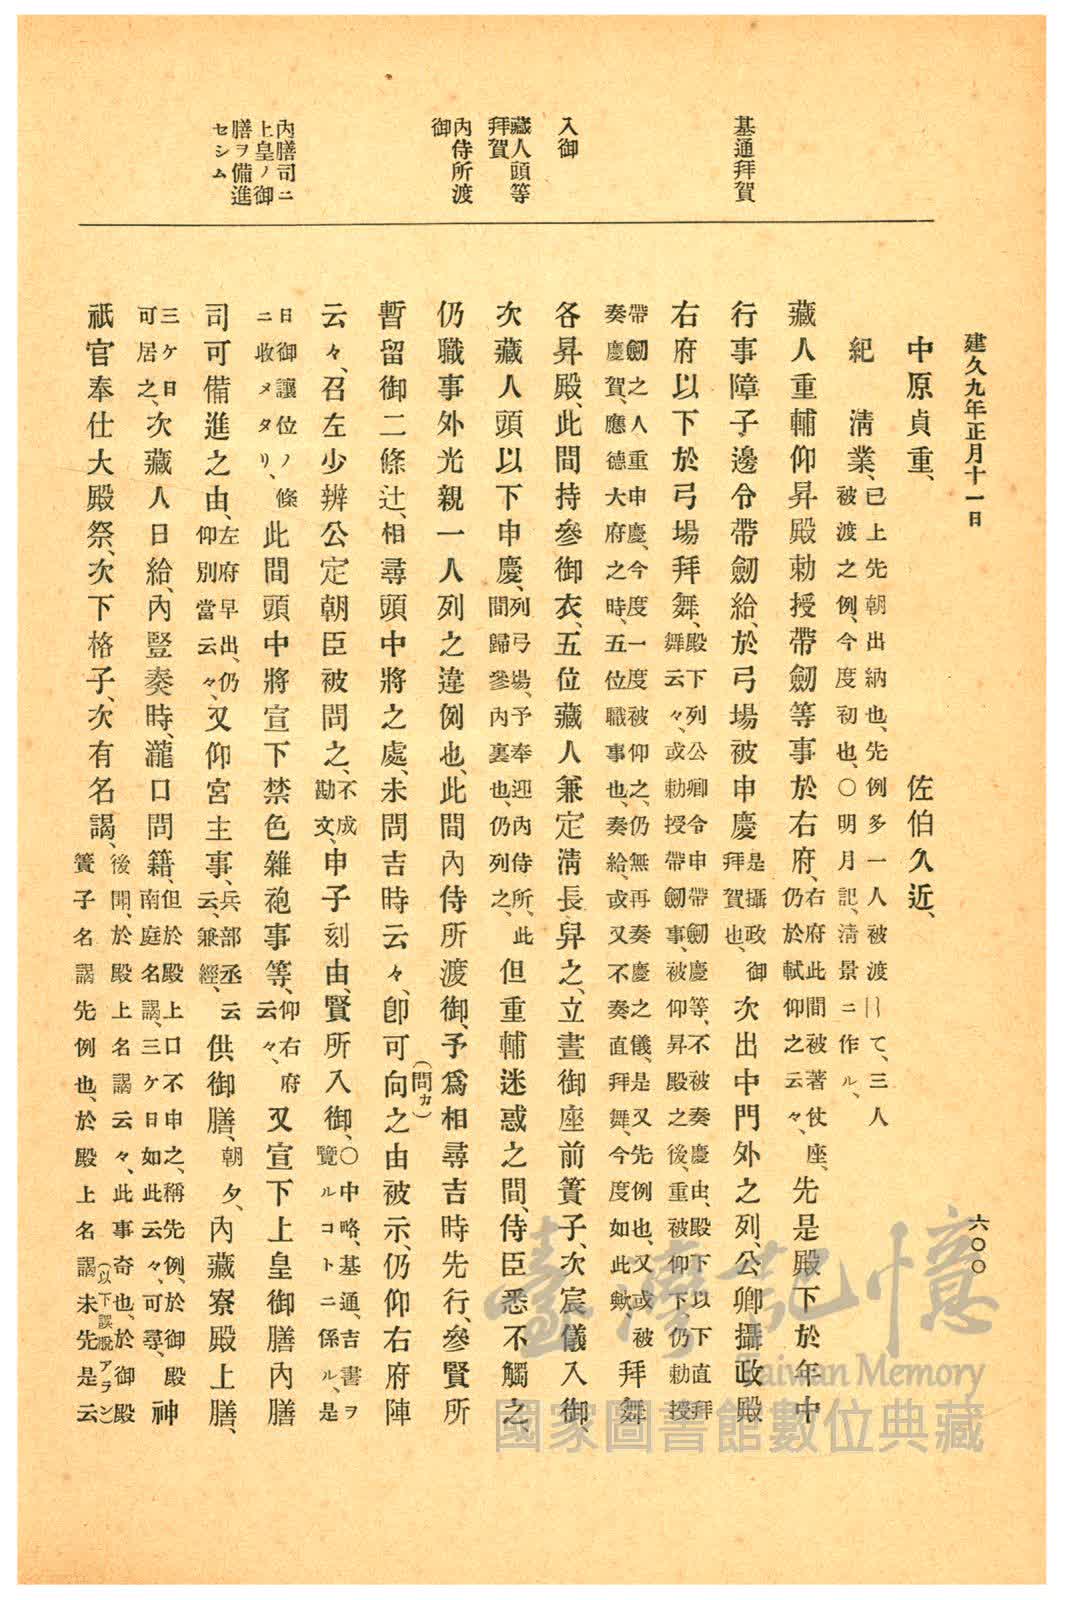 建久九年正月十一日
六〇〇
基通拜賀
入御
藏人頭等
拜賀
內侍所渡
御
內膳司ニ
上皇ノ御
膳ヲ備進
セシム
中原貞重、 佐伯久近、
紀 淸業、已上先朝出納也、先例多一人被渡丨て、三人
被渡之例、今度初也、〇明月記、淸景ニ作ル、
藏人重輔仰昇殿勅授帶劒等事於右府、右府此間被著仗座、
仍於軾仰之云々、先是殿下於年中
行事障子邊令帶劒給、於弓場被申慶是攝政御
拜賀也、次出中門外之列、公卿攝政殿
右府以下於弓場拜舞、殿下列公卿令申帶劒慶等、不被奏慶由、殿下以下直拜
舞云々、或勅授帶劒事、被仰昇殿之後、重被仰下、仍勅授
帶劒之人重申慶、今度一度被仰之、仍無再奏慶之儀、是又先例也、又或被
奏慶賀、應德大府之時、五位職事也、奏給、或又不奏直拜舞、今度如此歟、拜舞
各昇殿、此間持參御衣、五位藏人兼定淸長舁之、立晝御座前簀子、次宸儀入御、
次藏人頭以下申慶、列弓場、予奉迎內侍所、此
間歸參內裏也、仍列之、但重輔迷惑之間、侍臣悉不觸之、
仍職事外光親一人列之違例也、此間內侍所渡御、予爲相尋吉時先行、參賢所
暫留御二條辻、相尋頭中將之處、未問吉時云々、卽可向(問カ)之由被示、仍仰右府陣
云々、召左少辨公定朝臣被問之、不成
勘文、申子刻由、賢所入御、〇中略、基通、吉書ヲ
覽ルコトニ係ル、是
日御讓位ノ條
ニ收メタリ、此間頭中將宣下禁色雜袍事等、仰右府
云々、又宣下上皇御膳內膳
司可備進之由、左府早出、仍
仰別當云々、又仰宮主事、兵部丞云
云、兼經、供御膳、朝夕、內藏寮殿上膳、
三ケ日
可居之、次藏人日給、內豎奏時、瀧口問籍、但於殿上口不申之、稱先例、於御殿
南庭名謁、三ケ日如此云々、可尋、神
祇官奉仕大殿祭、次下格子、次有名謁、後聞、於殿上名謁云々、此事奇也、於御殿
簀子名謁先例也、於殿上名謁未先是云(以下誤脫アラン)
臺灣記憶
Taiwan Memory
國家圖書館數位典藏